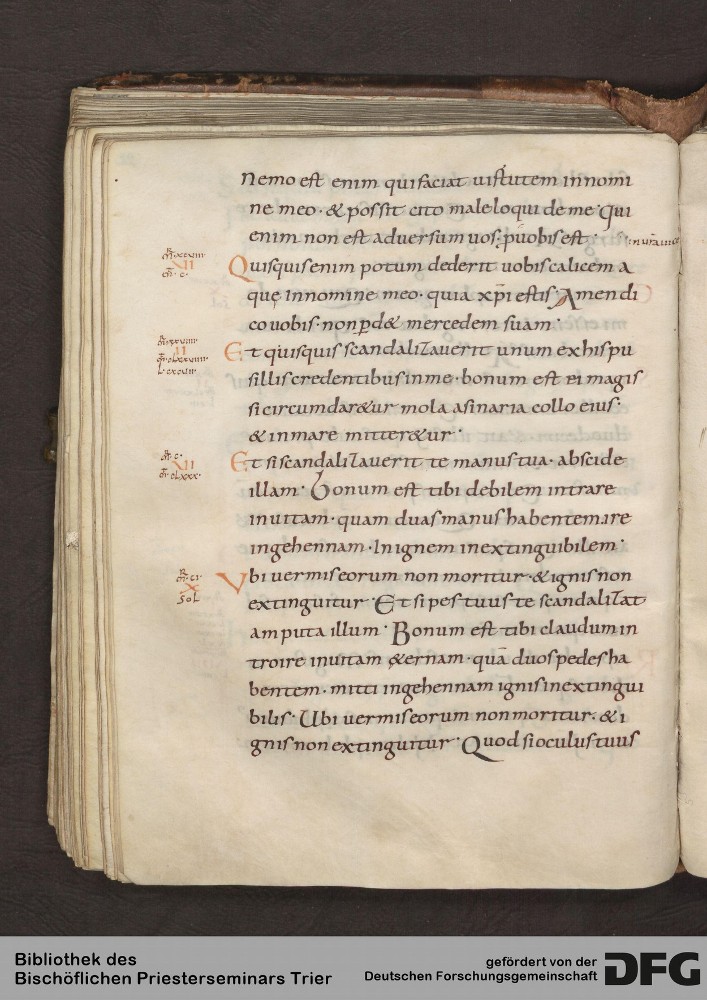 Nemo est enim qui faciat uirtutem innomi
ne meo · & possit cito male loqui de me · Qui
enim non est aduersum uos · p̄ uobis est ·
Quisquis enim potum dederit uobis calicem a
quę innomine meo · quia xp̄i estis · Amen di
co uobis · non perd& mercedem suam ·
Et quisquis scandalizauerit unum ex his pu
sillis credentibus in me · bonum est ei magis
si circumdar&ur mola asinaria collo eius ·
& in mare mitter&ur ·
Et si scandalizauerit te manus tua · abscide
illam · Bonum est tibi debilem intrare
inuitam · quam duas manus habentem ire
ingehennam · In ignem inextinguibilem ·
Vbi uermis eorum non moritur · & ignis non
extinguitur · Et si pes tuus te scandalizat
amputa illum · Bonum est tibi claudum in
troire inuitam &ernam · quā duos pedes ha
bentem · mitti ingehennam ignis inextingui
bilis · Ubi uermis eorum non moritur · & i
gnis non extinguitur · Quod si oculus tuus
VII
c̄
VII
c̄
VII
X
Sol
Bibliothek des
Bischöflichen Priesterseminars Trier
gefördert von der
Deutschen Forschungsgemeinschaft
DFG